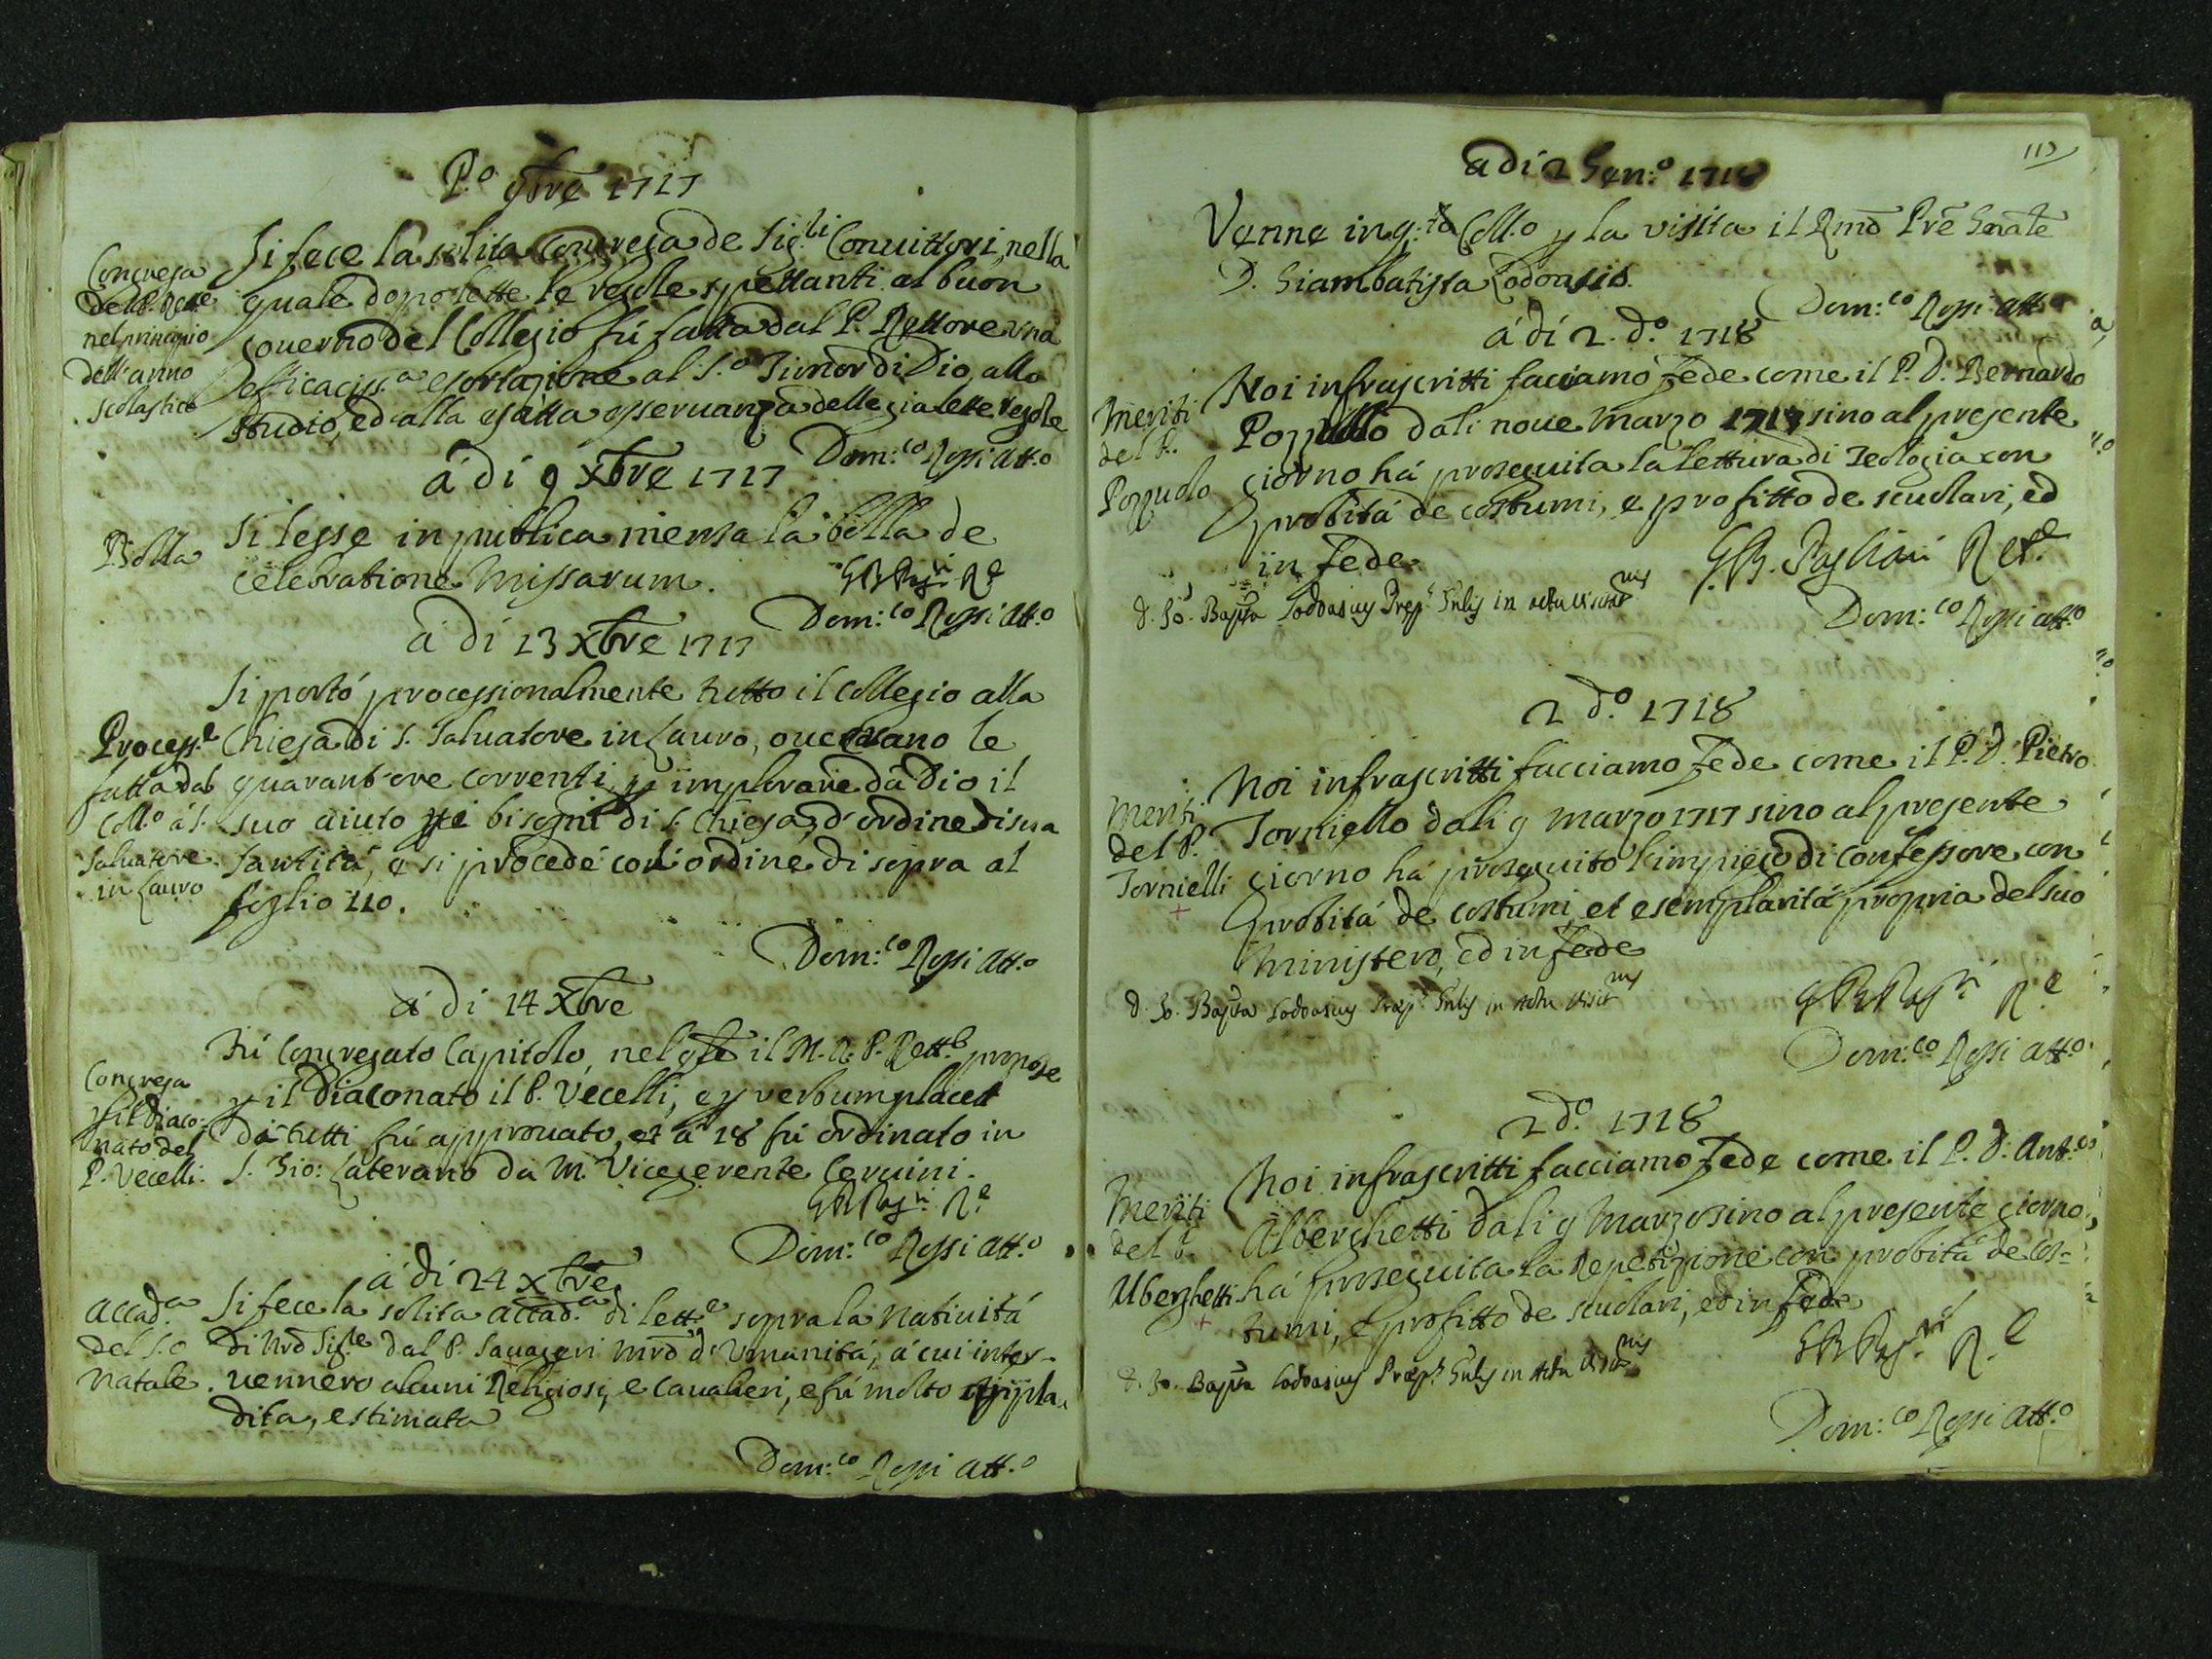 P.o 9bre 1717
Congrega
del P. Rett.e
nel principio
dell'anno
scolastico
Si fece la solita Congrega de Sig.ri Convittori, nella
quale dopo lette le regole spettanti al buon
governo del Collegio fú fatta dal P. Rettore una
efficaciss.a esortazione al S.o Timor di Dio, allo
studio, ed alla esatta osservanza delle gia lette regole
Dom:co Rossi Att.o
á di 9 Xbre 1717
Bolla
Si lesse in publica mensa la bolla de
celebratione Missarum.
Dom:co Rossi Att.o
á di 13 Xbre 1717
Process.e
fatta dal
Coll.o á S.
Salvatore
in Lauro
Si portó processionalmente tutto il Collegio alla
Chiesa di S. Salvatore in Lauro, ove erano le
quarant'ore correnti, p implorare da Dio il
suo aiuto ne bisogni di S. Chiesa, d'ordine di sua
santitá, e si procedé coll'ordine di sopra al
foglio 110.
Dom:co Rossi Att.o
á di 14 Xbre
Congrega
p il Diaco:
nato del
P. Vecelli.
Fú Congregato Capitolo, nel qle il M. R. P. Rett.e propose
p il Diaconato il P. Vecelli, e p verbum placet
da tutti fú approvato, et á 18 fú ordinato in
S. Gio: Laterano da M. Vicegerente Cervini.
Dom:co Rossi Att.o
á di 24 Xbre
Accad.a
del S.o
Natale.
Si fece la solita accad.a di lett.e sopra la Nativitá
di Nro Sig.re dal P. Savageri mro d'Umanitá, á cui inter-
vennero alcuni Religiosi, e Cavalieri, e fú molto applau
dita, e stimata
Dom:co Rossi Att.o
113
a di 2 Gen:o 1718
Venne in q:to Coll.o p la visita il Rmo Pre Gnale
D. Giambatista Lodovasio.
Dom:co Rossi Att.o
á di 2. d.o 1718
Meriti
del P.
Pozzuolo
Noi infrascritti facciamo fede come il P. D. Bernardo
Pozzuolo dali nove Marzo 1717 sino al presente
giorno há proseguita la lettura di Teologia con
probitá de costumi, e profitto de scuolari, ed
in fede
G.B. Pagliari Ret.e
D. Jo. Bapta Lodovasius Prep.s Gnlis in actu visit.nis
Dom:co Rossi Att.o
2 d.o 1718
Meriti
del P.
Tornielli
+
Noi infrascritti facciamo fede come il P. D. Pietro
Torniello dali 9 Marzo 1717 sino al presente
giorno há proseguito l'impiego di Confessore con
probitá de costumi, et esemplaritá propria del suo
ministero, ed in fede
D. Jo. Bapta Lodovasius Praep.s Gnlis in actu visit.nis
Dom:co Rossi Att.o
2 d.o 1718
Meriti
del P.
Alberghetti
+
Noi infrascritti facciamo fede come il P. D. Ant.o
Alberghetti dali 9 Marzo sino al presente giorno
há proseguita la Repetizione con probitá de cos=
tumi, e profitto de scuolari, ed in fede
D. Jo. Bapta Lodovasius Praep.s Gnlis in actu visit.nis
Dom:co Rossi Att.o